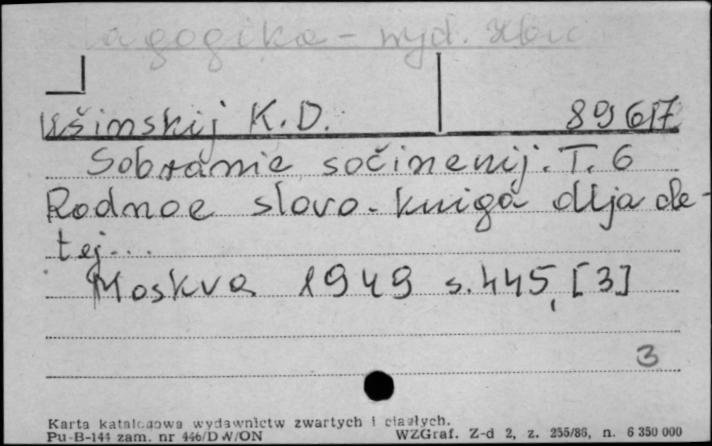 agogika - wyd. zbio
Ušinskij K.D. 89617
Sobranie sočinenij. T. 6
Rodnoe slovo. kniga dlja de-
tej...
Moskva 1949 s. 445, [3]
3
Karta katalogowa wydawnictw zwartych i ciągłych.
Pu-B-144 zam. nr 446/DW/ON WZGraf. Z-d 2, z. 255/86, n. 6 350 000